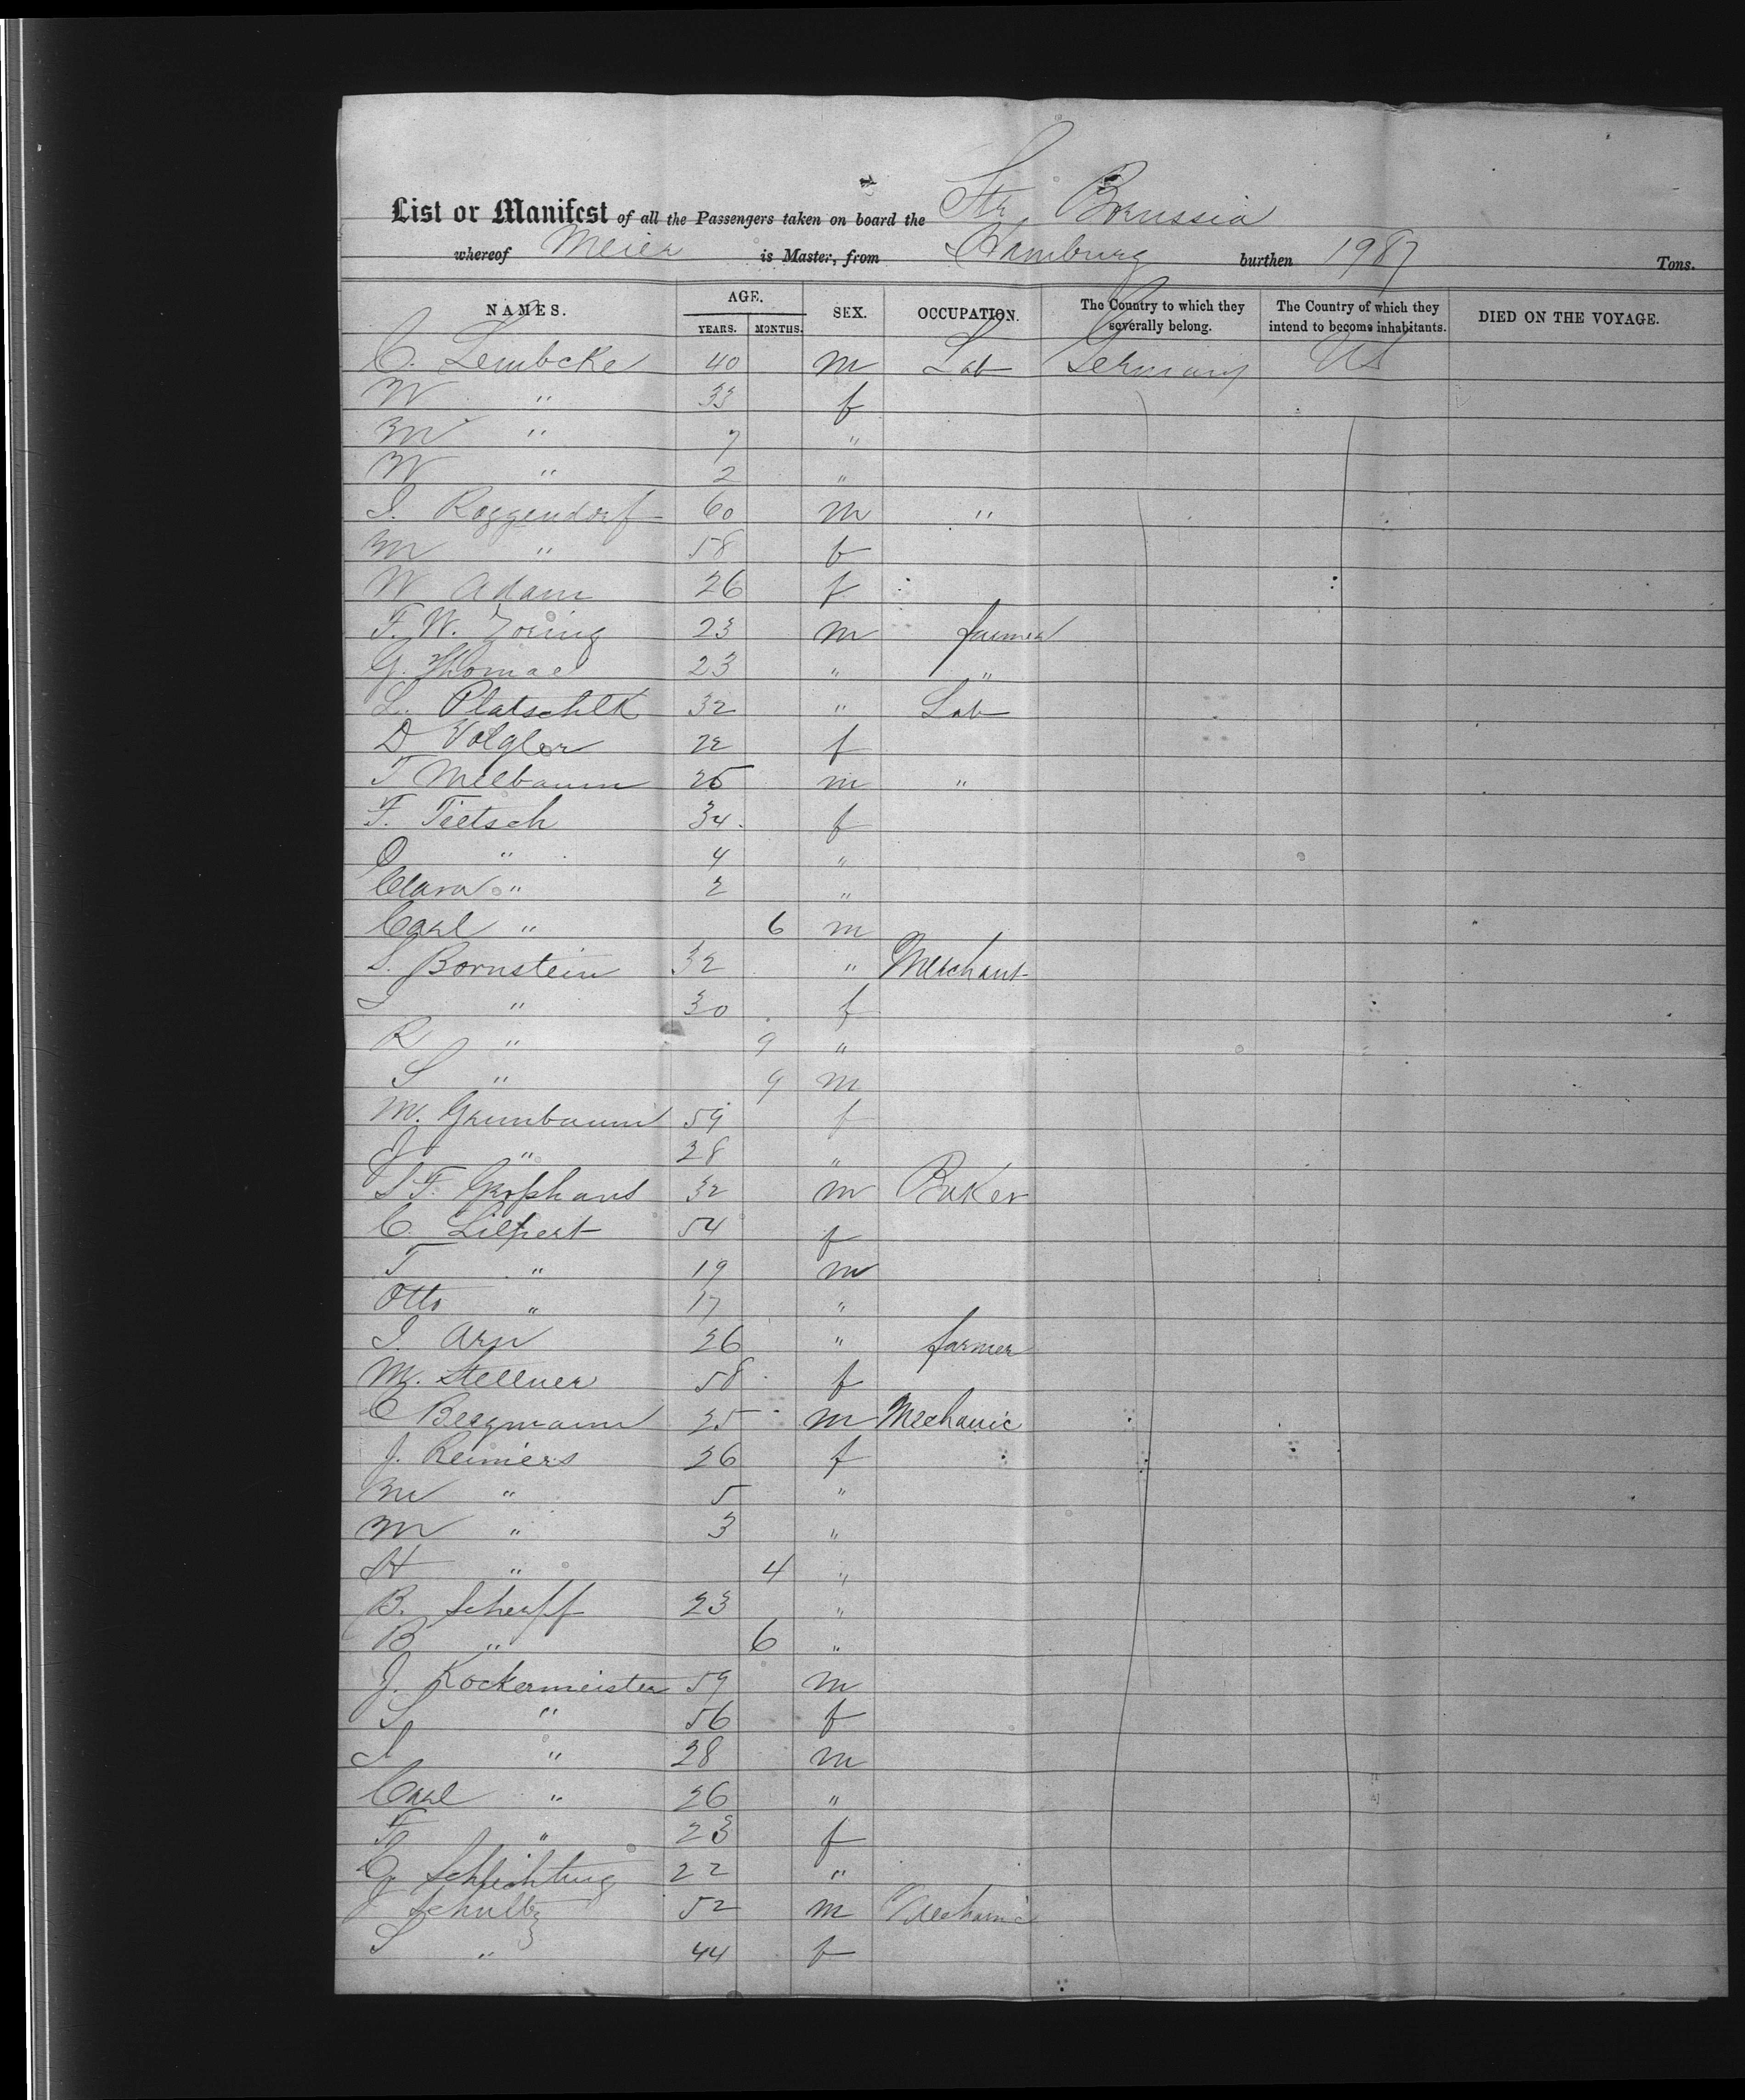 List or Manifest of all the Passengers taken on board the Str Borussia
whereof Meier is Master, from Hamburg burthen 1987 Tons.
NAMES. AGE. YEARS. MONTHS. SEX. OCCUPATION. The Country to which they severally belong. The Country of which they intend to become inhabitants. DIED ON THE VOYAGE.
C. Lembcke 40 m Lab Germany US
W " 33 f
M " 7 "
W " 2 "
I. Roggendorf 60 m "
M " 58 f
W Adam 26 f
F. W. Zoring 23 m farmer
G. Thomae 23 " "
L. Platschek 32 " Lab
D Volgler 22 f
T Melbaum 25 m "
F. Tietsch 34 f
O " 4 "
Clara " 2 "
Carl " 6 m
S. Bornstein 32 " Merchant
I " 30 f
R " 9 "
S " 9 m
M. Grunbaum 59 f
J " 28 "
32 m Baker
C. Lilpert 54 f
T " 19 m
Otto " 17 "
I. Arn 26 " farmer
M. Stellner 58 f
C Bergmann 25 m Mechanic
J. Reimers 26 f
M " 5 "
M " 3 "
H " 4 "
B. Scherff 23 "
B " 6 "
J. Kockermeister 59 m
S " 56 f
I " 28 m
Carl " 26 "
F " 23 f
C. Schlichting 22 "
J Schultz 52 m Mechanic
S " 44 f